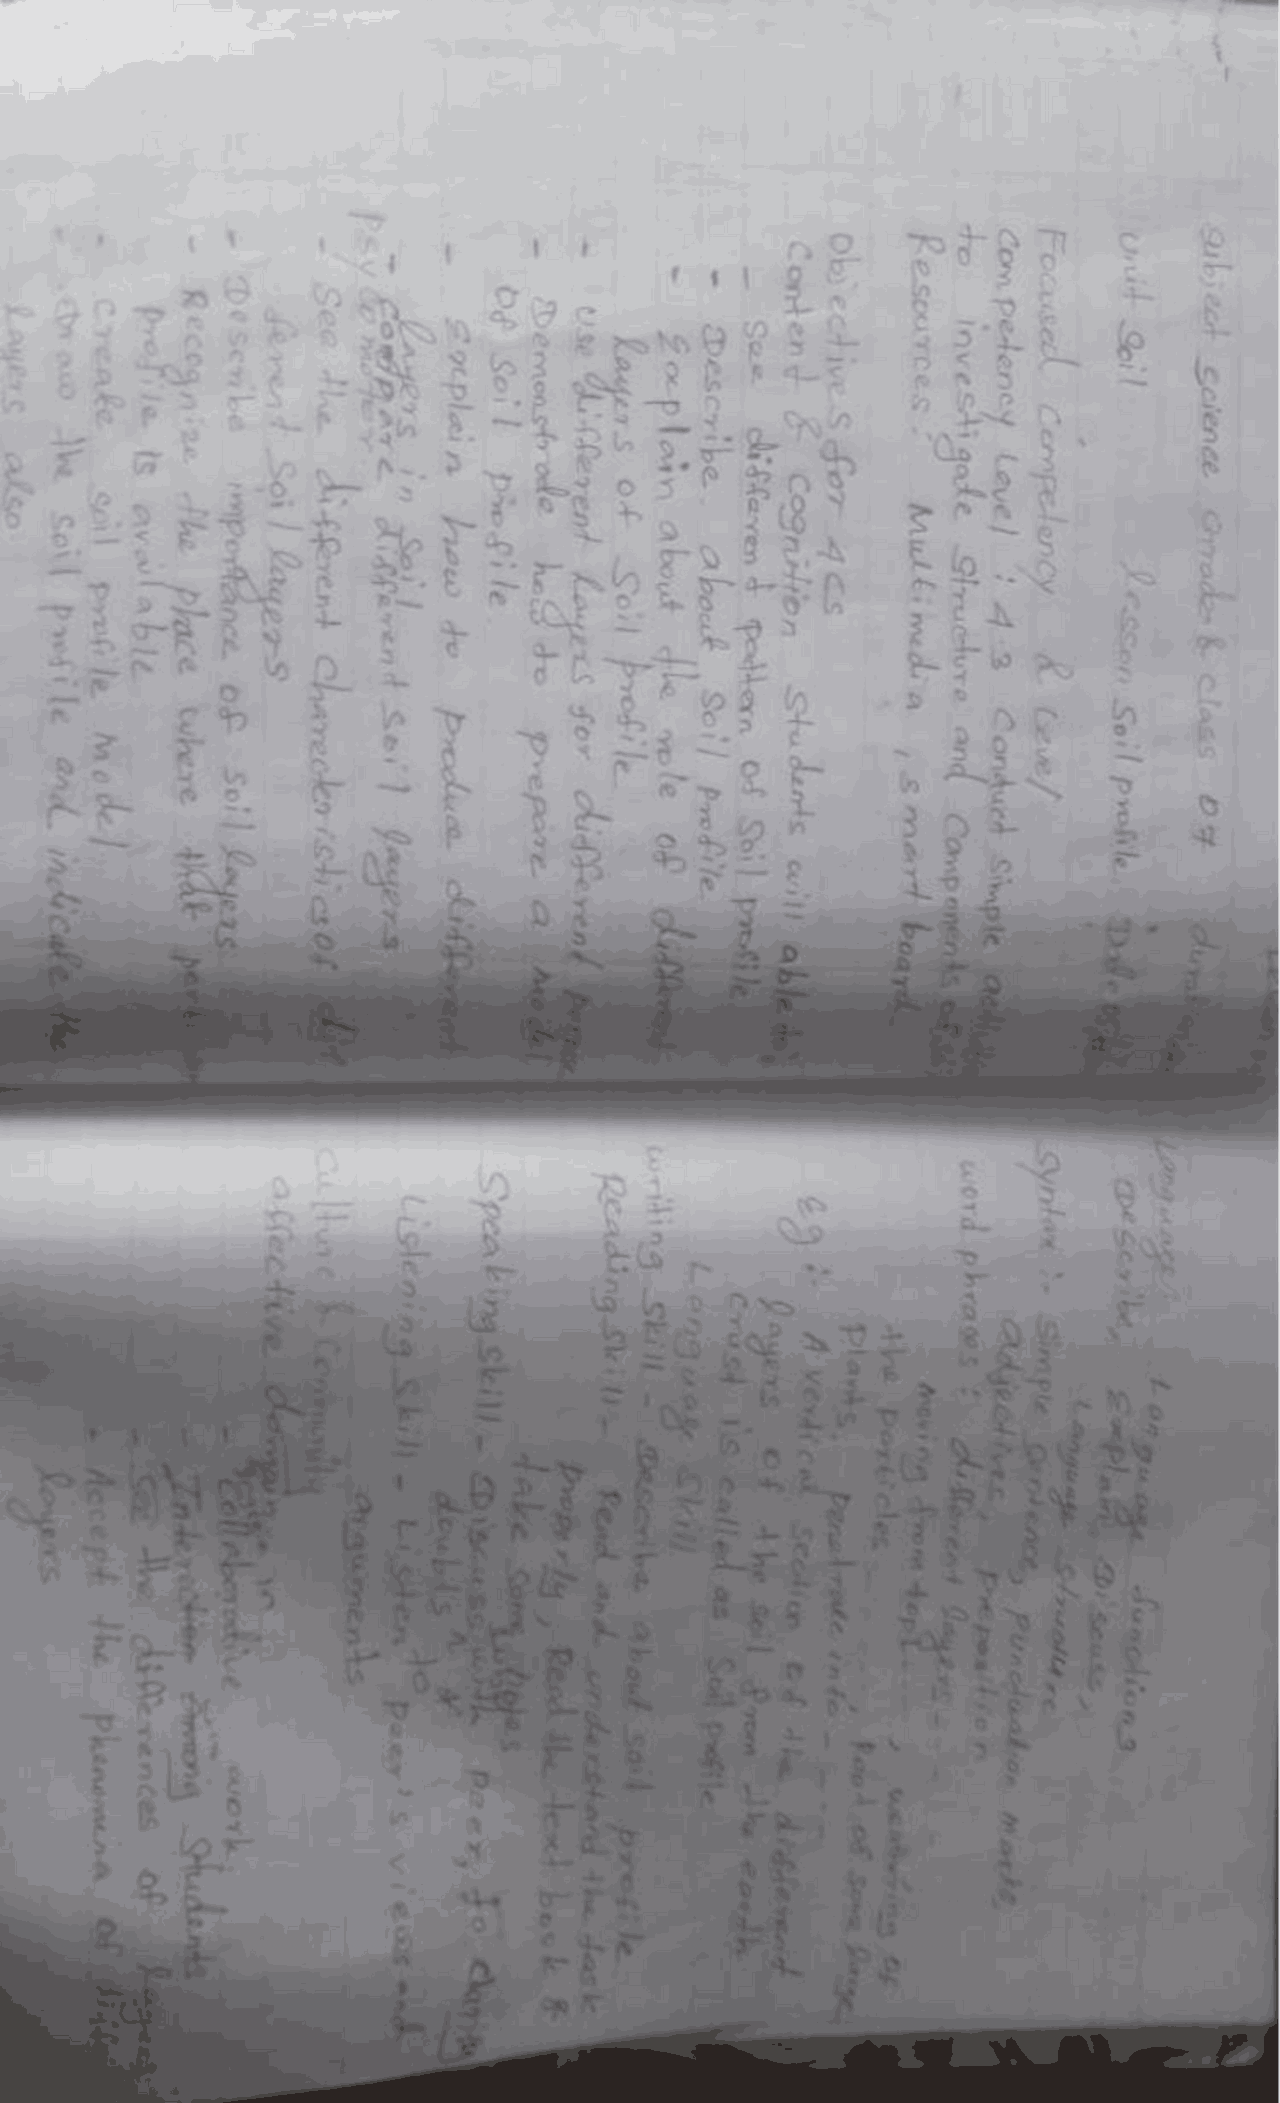 Subject Science Grade & class 07
Unit Soil Lesson Soil profile
Focused Competency & Level
Competency Level : 4.3 Conduct simple
to investigate structure and Components of
Resources. Multimedia, smart board
Objectives for 4Cs
Content & Cognition students will able
- See different pattern of Soil profile
- Describe about Soil profile.
- Explain about the role of
layers of Soil profile.
- Use different layers for different
- Demonstrate how to prepare a model
of soil profile.
- Explain how to produce different
layers in soil
Psycomotor
- Compare different soil layers
- See the different charecteristics of
ferent soil layers
- Describe importance of soil layers
- Recognize the place where that
profile is available
- Create soil profile model
- Draw the soil profile and indicate the
layers also
Languages Language functions
Describe, Explain, Discuss,
Language structure
Syntax :- Simple sentence, punctuation marks
adjectives, preposition
word phrases : different layers
moving from top, weathering of
the particles Root of some large
plants. penetrate into
Eg :- A vertical section of the different
layers of the soil from the earth
crust is called as soil profile
Language skill
Writing skill - Describe about soil profile
Reading skill - Read and understand the task
properly, Read the text book &
take some notes
Speaking skill - Discuss with peer, to clarify
doubts
Listening skill - Listen to peer's views and
arguments
Culture & Community
affective domain
- in Collaborative work,
- Interaction Among Students
- See the differences of
- Accept the phenomena of
layers